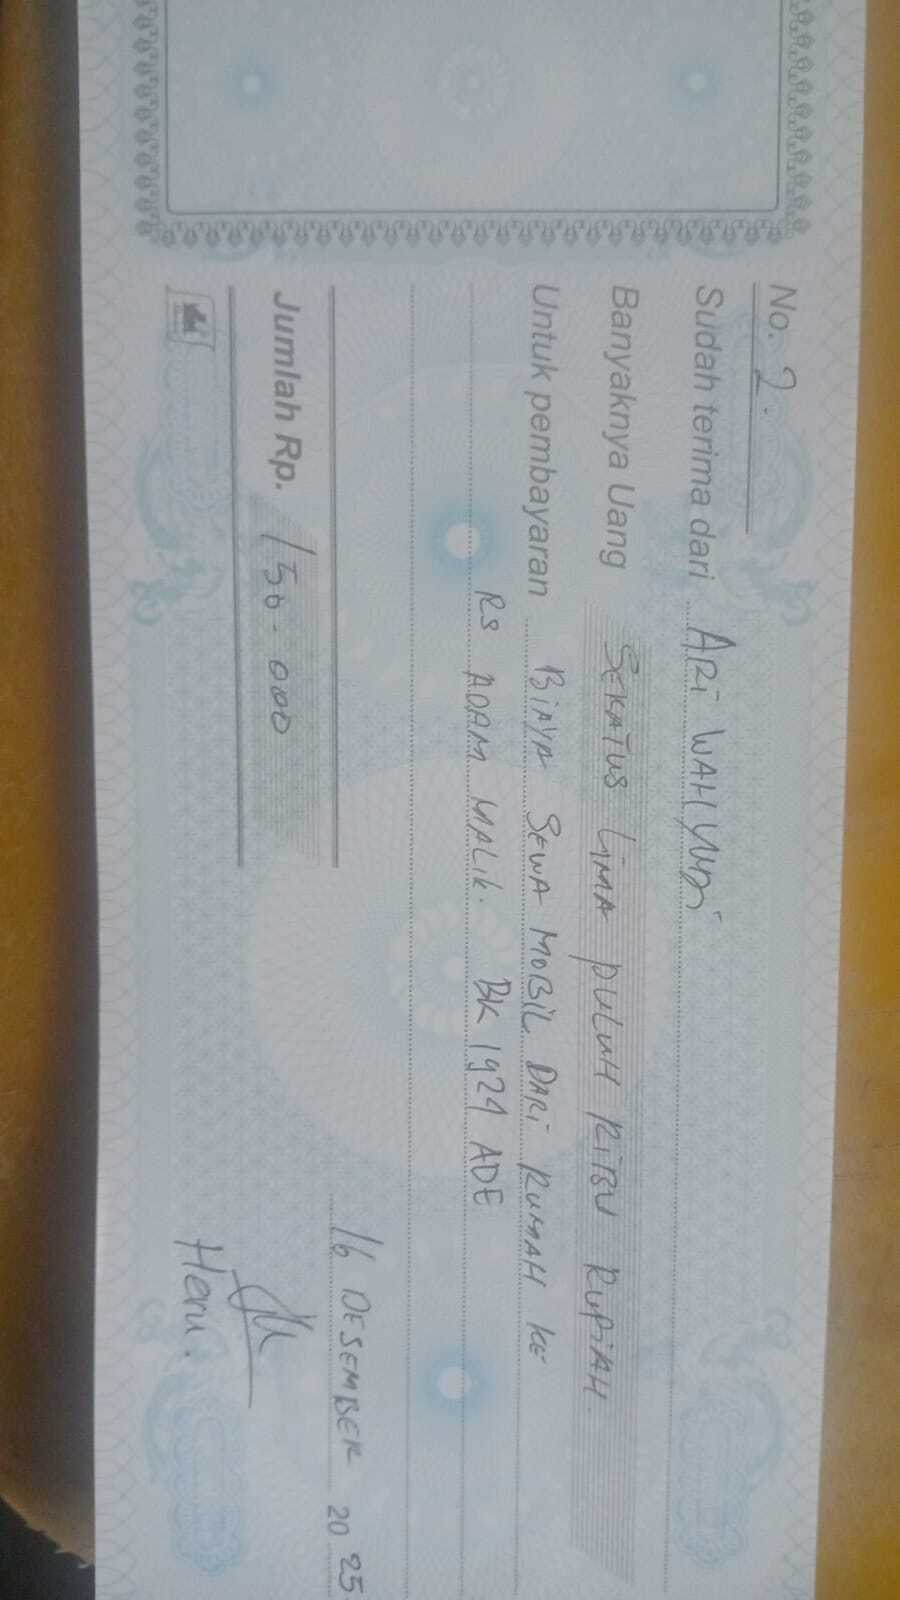 No. 2.
Sudah terima dari ARi WAHYUDI
Banyaknya Uang SERATUS LiMA PULUH RiBU RUPiAH.
Untuk pembayaran BiAYA SEWA MOBiL DARi RUMAH KE
RS ADAM MALiK. BK 1924 ADE
16 DESEMBER 2025
Jumlah Rp. 150.000
Heru.